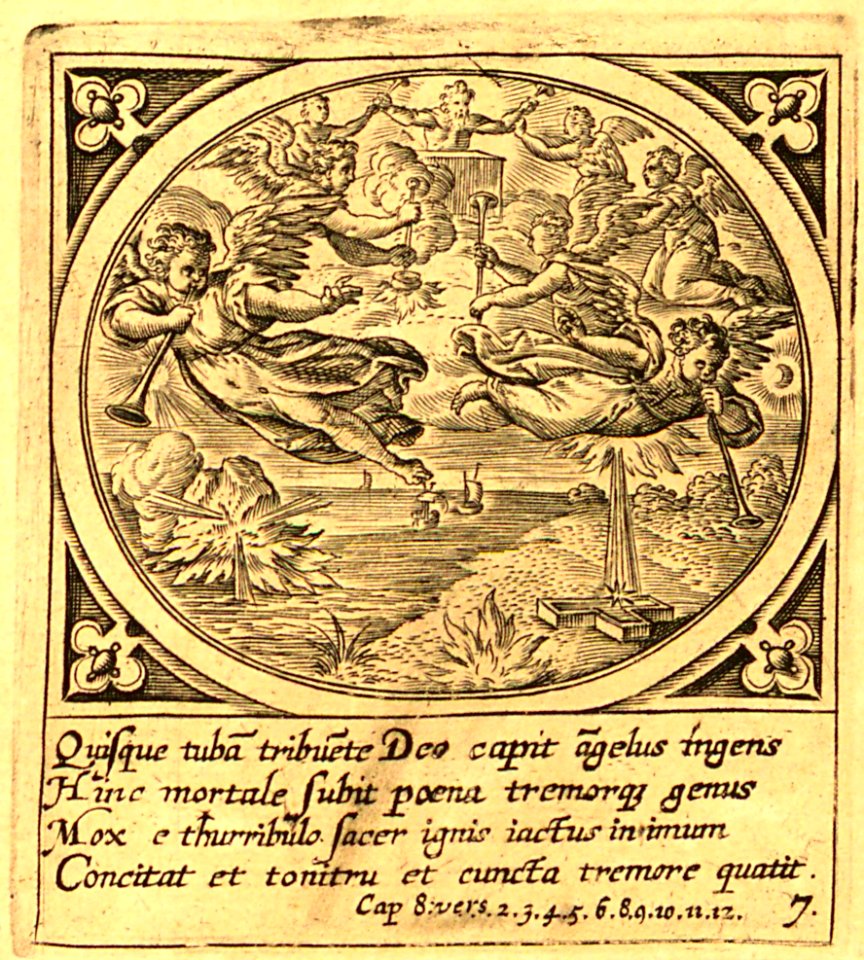 Quisque tubā tribuēte Deo capit āgelus ingens
Hinc mortale subit poena tremorq; genus
Mox e thurribulo sacer ignis iactus in imum
Concitat et tonitru et cuncta tremore quatit.
Cap 8: vers. 2. 3. 4. 5. 6. 8. 9. 10. 11. 12. 7.